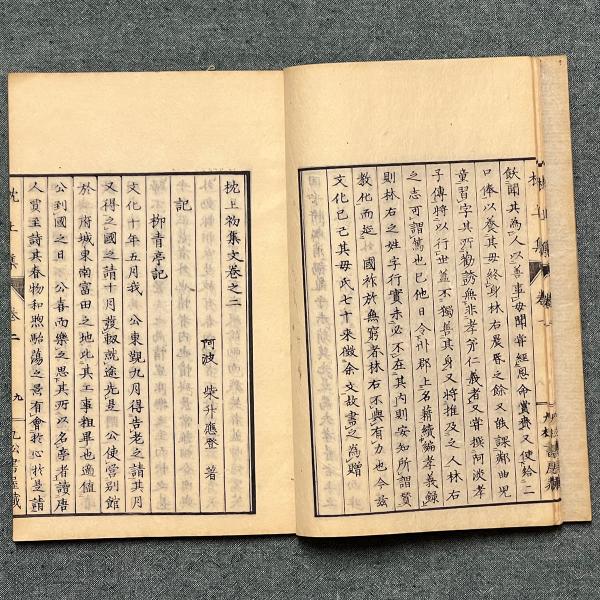 飲聞其為人以善事母聞常経恩命賞賚又使給二
口俸以養其母終身林右農暮之余又倶課鄰曲児
童習字其所勧誘無非孝弟仁義者又常撰阿淡孝
子傳将以行世蓋不独善其身又将推及之人林右
之志可謂篤也已他日令州郡上名籍続編孝義録
則林右之姓字行實未必不在其内則安知所謂賛
教化而延国祚於無窮者林右不與有力也今茲
文化己巳其母氏七十来徴余文故書之為贈
枕上初集文巻之二
阿波 柴升應登 著
記
柳青亭記
文化十年五月我 公東覲九月得告老之請其月
又得之國之請十月發軔就途先是 公使営別館
於 府城東南富田之地比其工事粗畢也適値
公到國之日 公喜而楽之思其所以名亭者讀唐
人賈至詩其春物和煦駘蕩之景有會於心於是請
枕上集
巻二
九